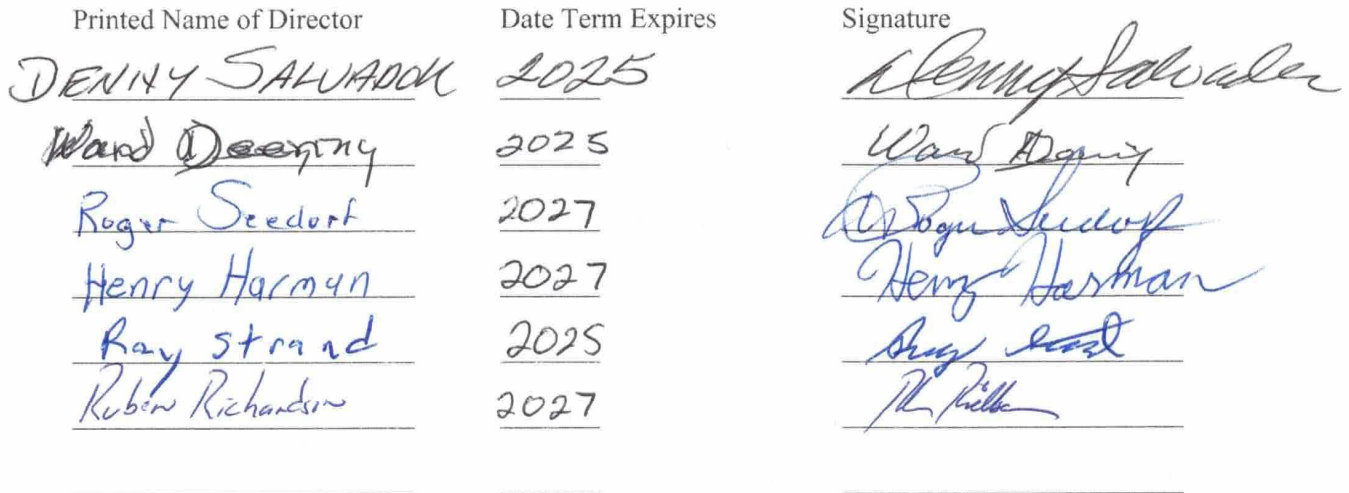 Printed Name of Director Date Term Expires Signature
DENNY SALVADOR 2025 Denny Salvador
Ward Deering 2025 Ward Deering
Roger Seedorf 2027 Roger Seedorf
Henry Harman 2027 Henry Harman
Ray Strand 2025 Ray
Ruben Richardson 2027